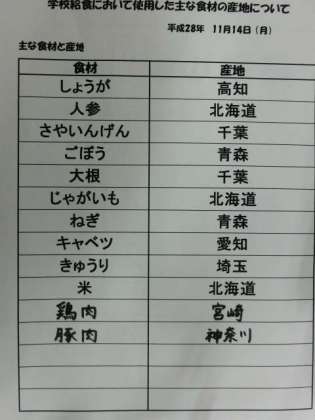 学校給食において使用した主な食材の産地について
平成28年 11月14日（月）
主な食材と産地
食材 産地
しょうが 高知
人参 北海道
さやいんげん 千葉
ごぼう 青森
大根 千葉
じゃがいも 北海道
ねぎ 青森
キャベツ 愛知
きゅうり 埼玉
米 北海道
鶏肉 宮崎
豚肉 神奈川